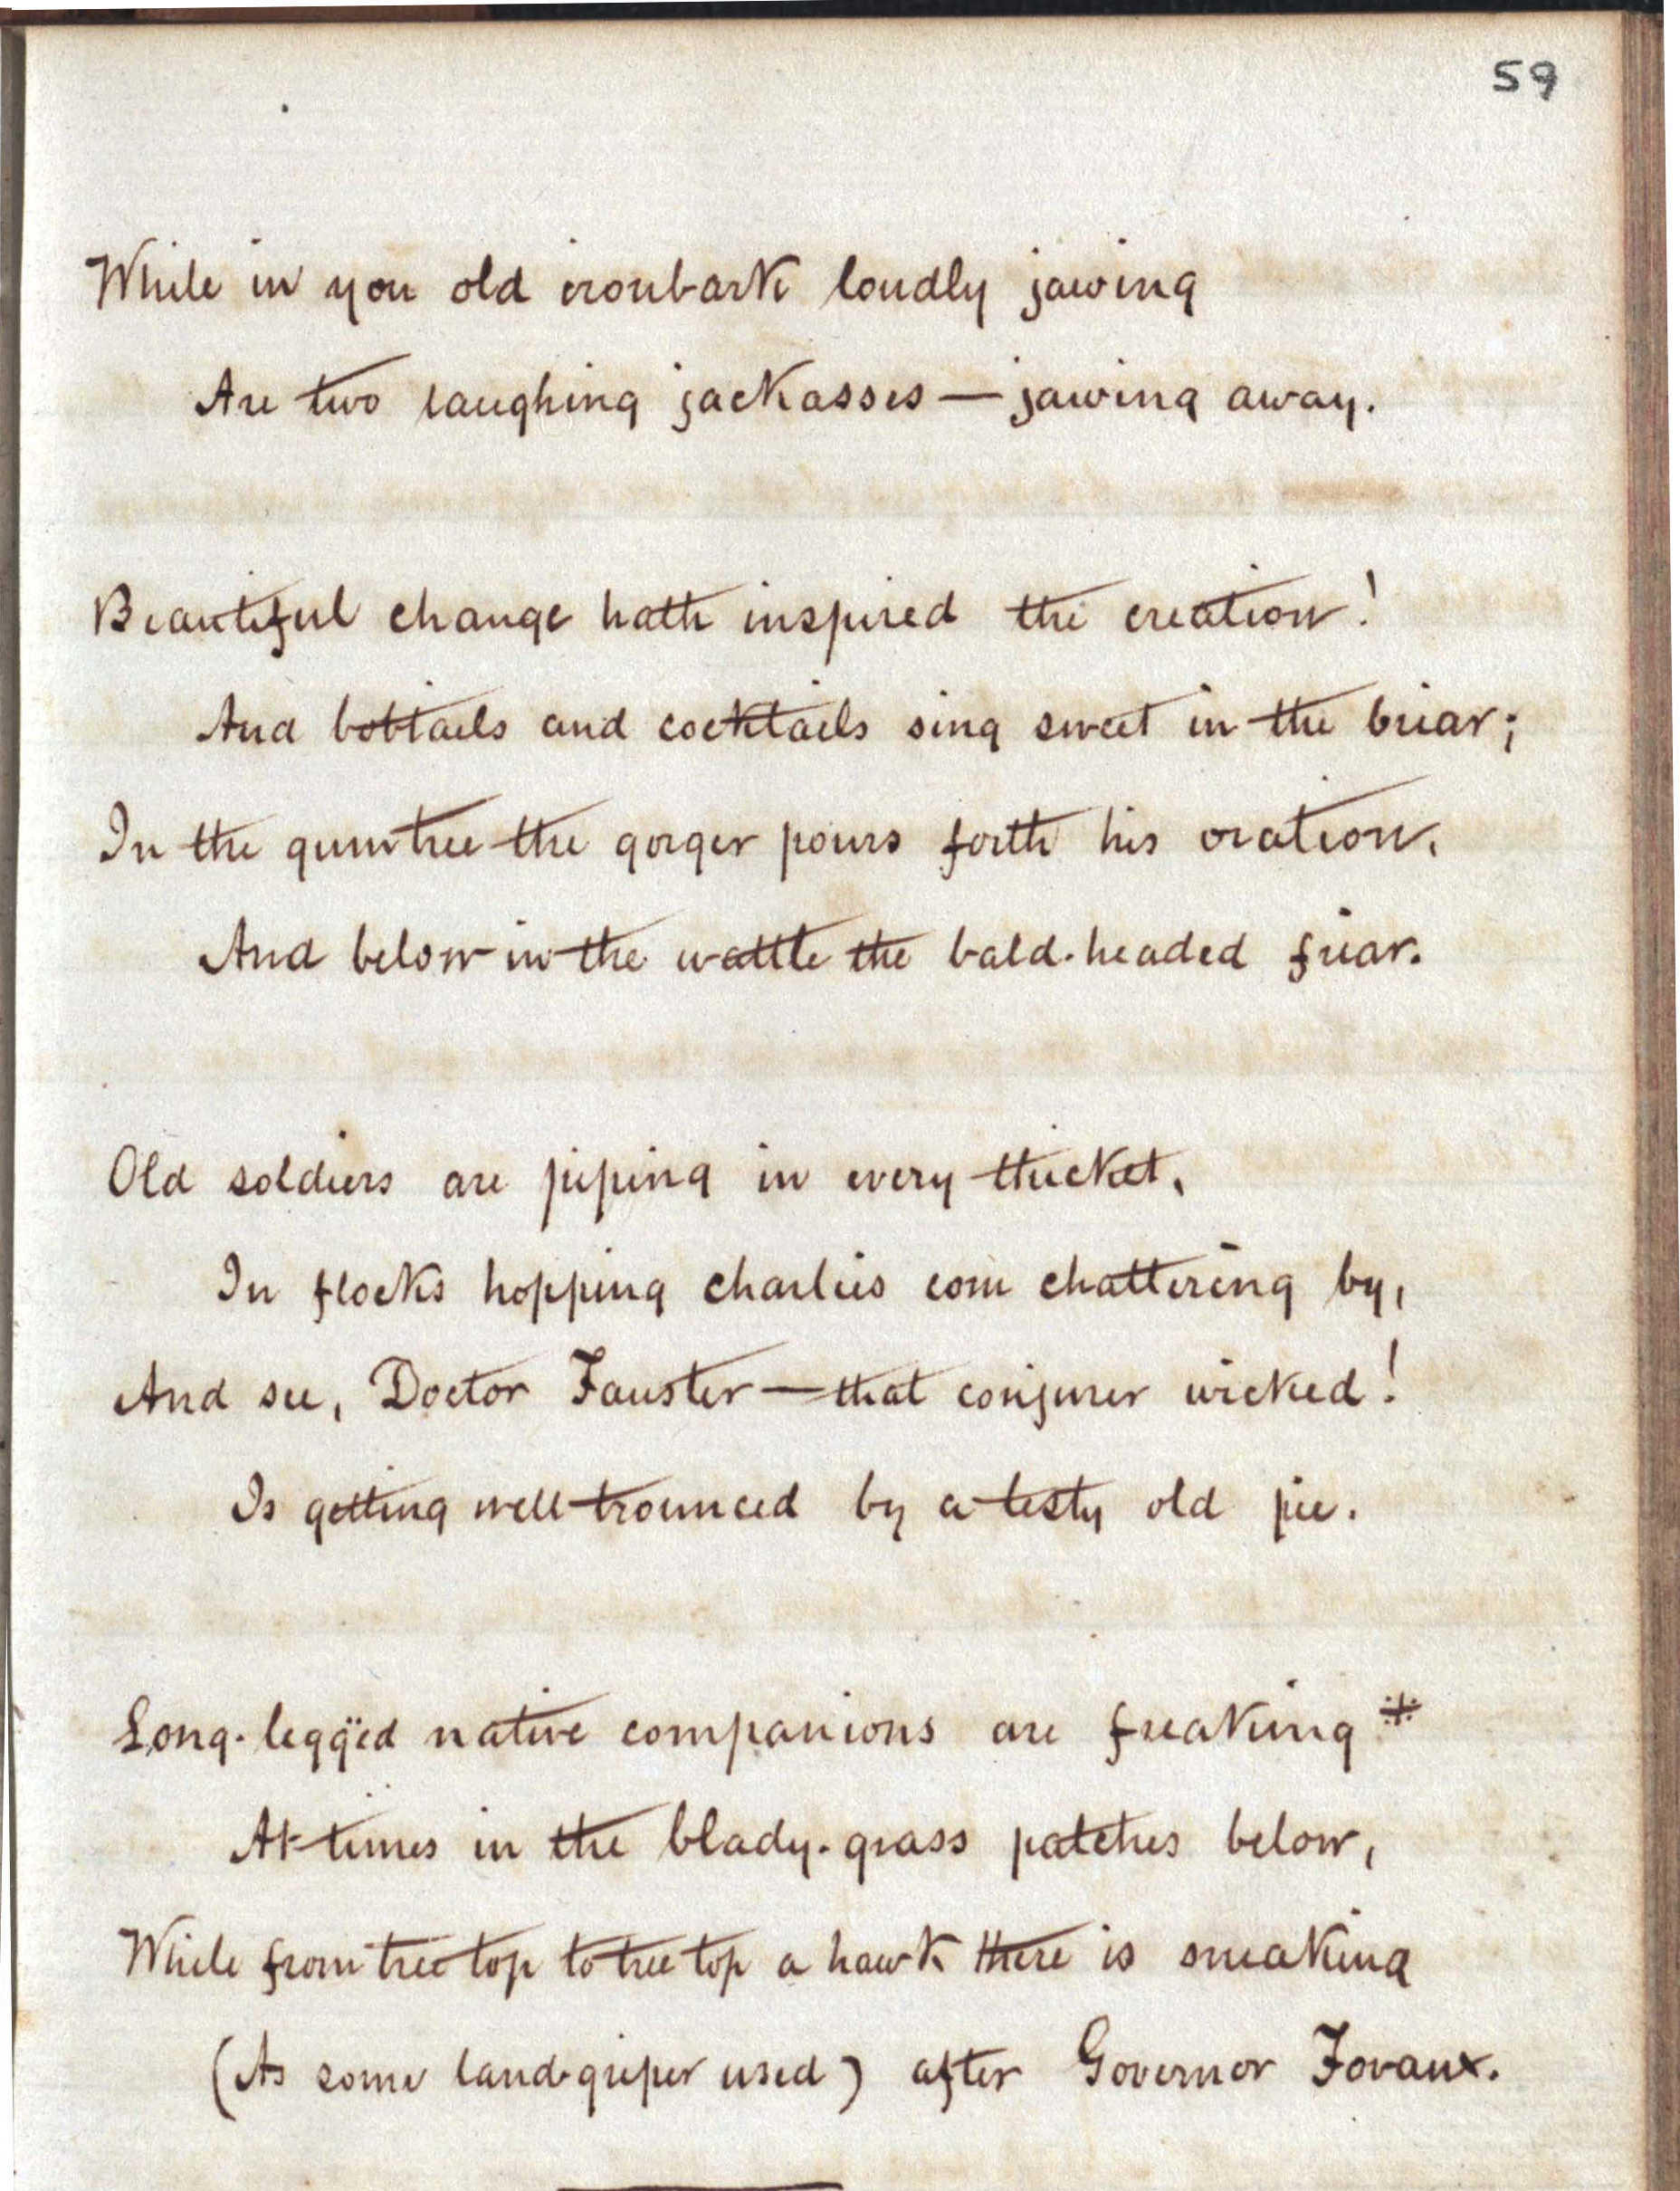 59
While in yon old ironbark loudly jawing
Are two laughing jackasses — jawing away.
Beautiful change hath inspired the creation!
And bobtails and cocktails sing sweet in the briar;
In the gumtree the gorger pours forth his oration,
And below in the wattle the bald-headed friar.
Old soldiers are piping in every thicket,
In flocks hopping charlies com chattering by,
And see, Doctor Fauster — that conjurer wicked!
Is getting well trounced by a testy old pie.
Long-leggëd native companions are freaking *
At times in the blady-grass patches below,
While from tree top to tree top a hawk there is sneaking
(As some land-griper used) after Governor Fovaux.